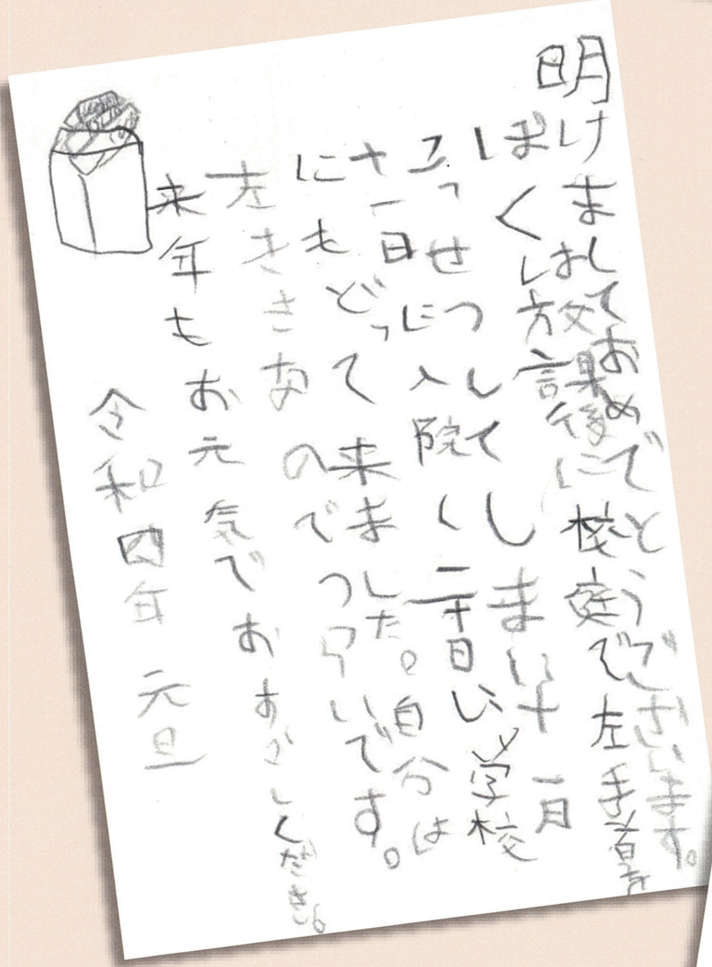 明けましておめでとうございます。
ぼくは放課後に校庭で左手首を
こっせつしてしまい十一月
十一日に入院し二十日に学校
にもどって来ました。自分は
左ききなのでつらいです。
来年もお元気でおすごしください。
令和四年 元旦